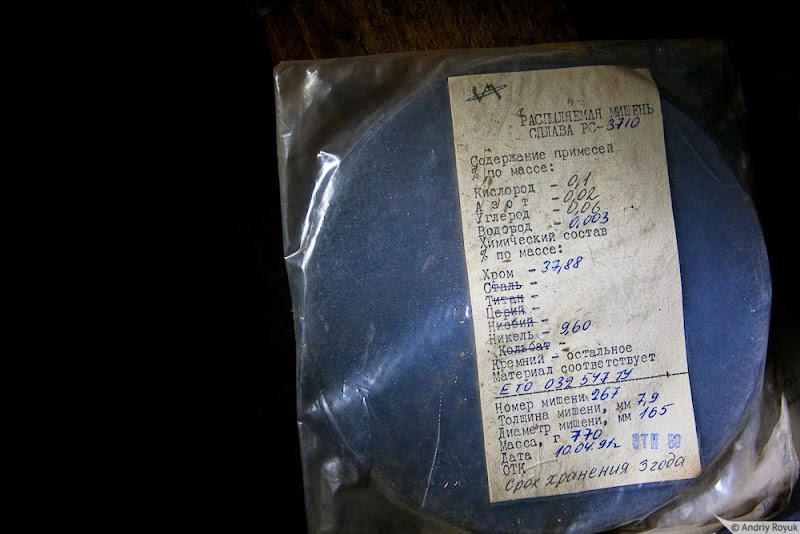 РАСПЫЛЯЕМАЯ МИШЕНЬ
СПЛАВА РС-3710
Содержание примесей
% по массе:
Кислород - 0,1
А з о т - 0,02
Углерод - 0,06
Водород - 0,003
Химический состав
% по массе:
Хром - 37,88
Сталь -
Титан -
Церий -
Ниобий -
Никель - 9,60
Кольбат -
Кремний - остальное
Материал соответствует
ЕТО 032 547 ТУ
Номер мишени 267
Толщина мишени, мм 7,9
Диаметр мишени, мм 165
Масса, г 770
Дата 10.04.91г
ОТК
Срок хранения 3 года
© Andriy Royuk